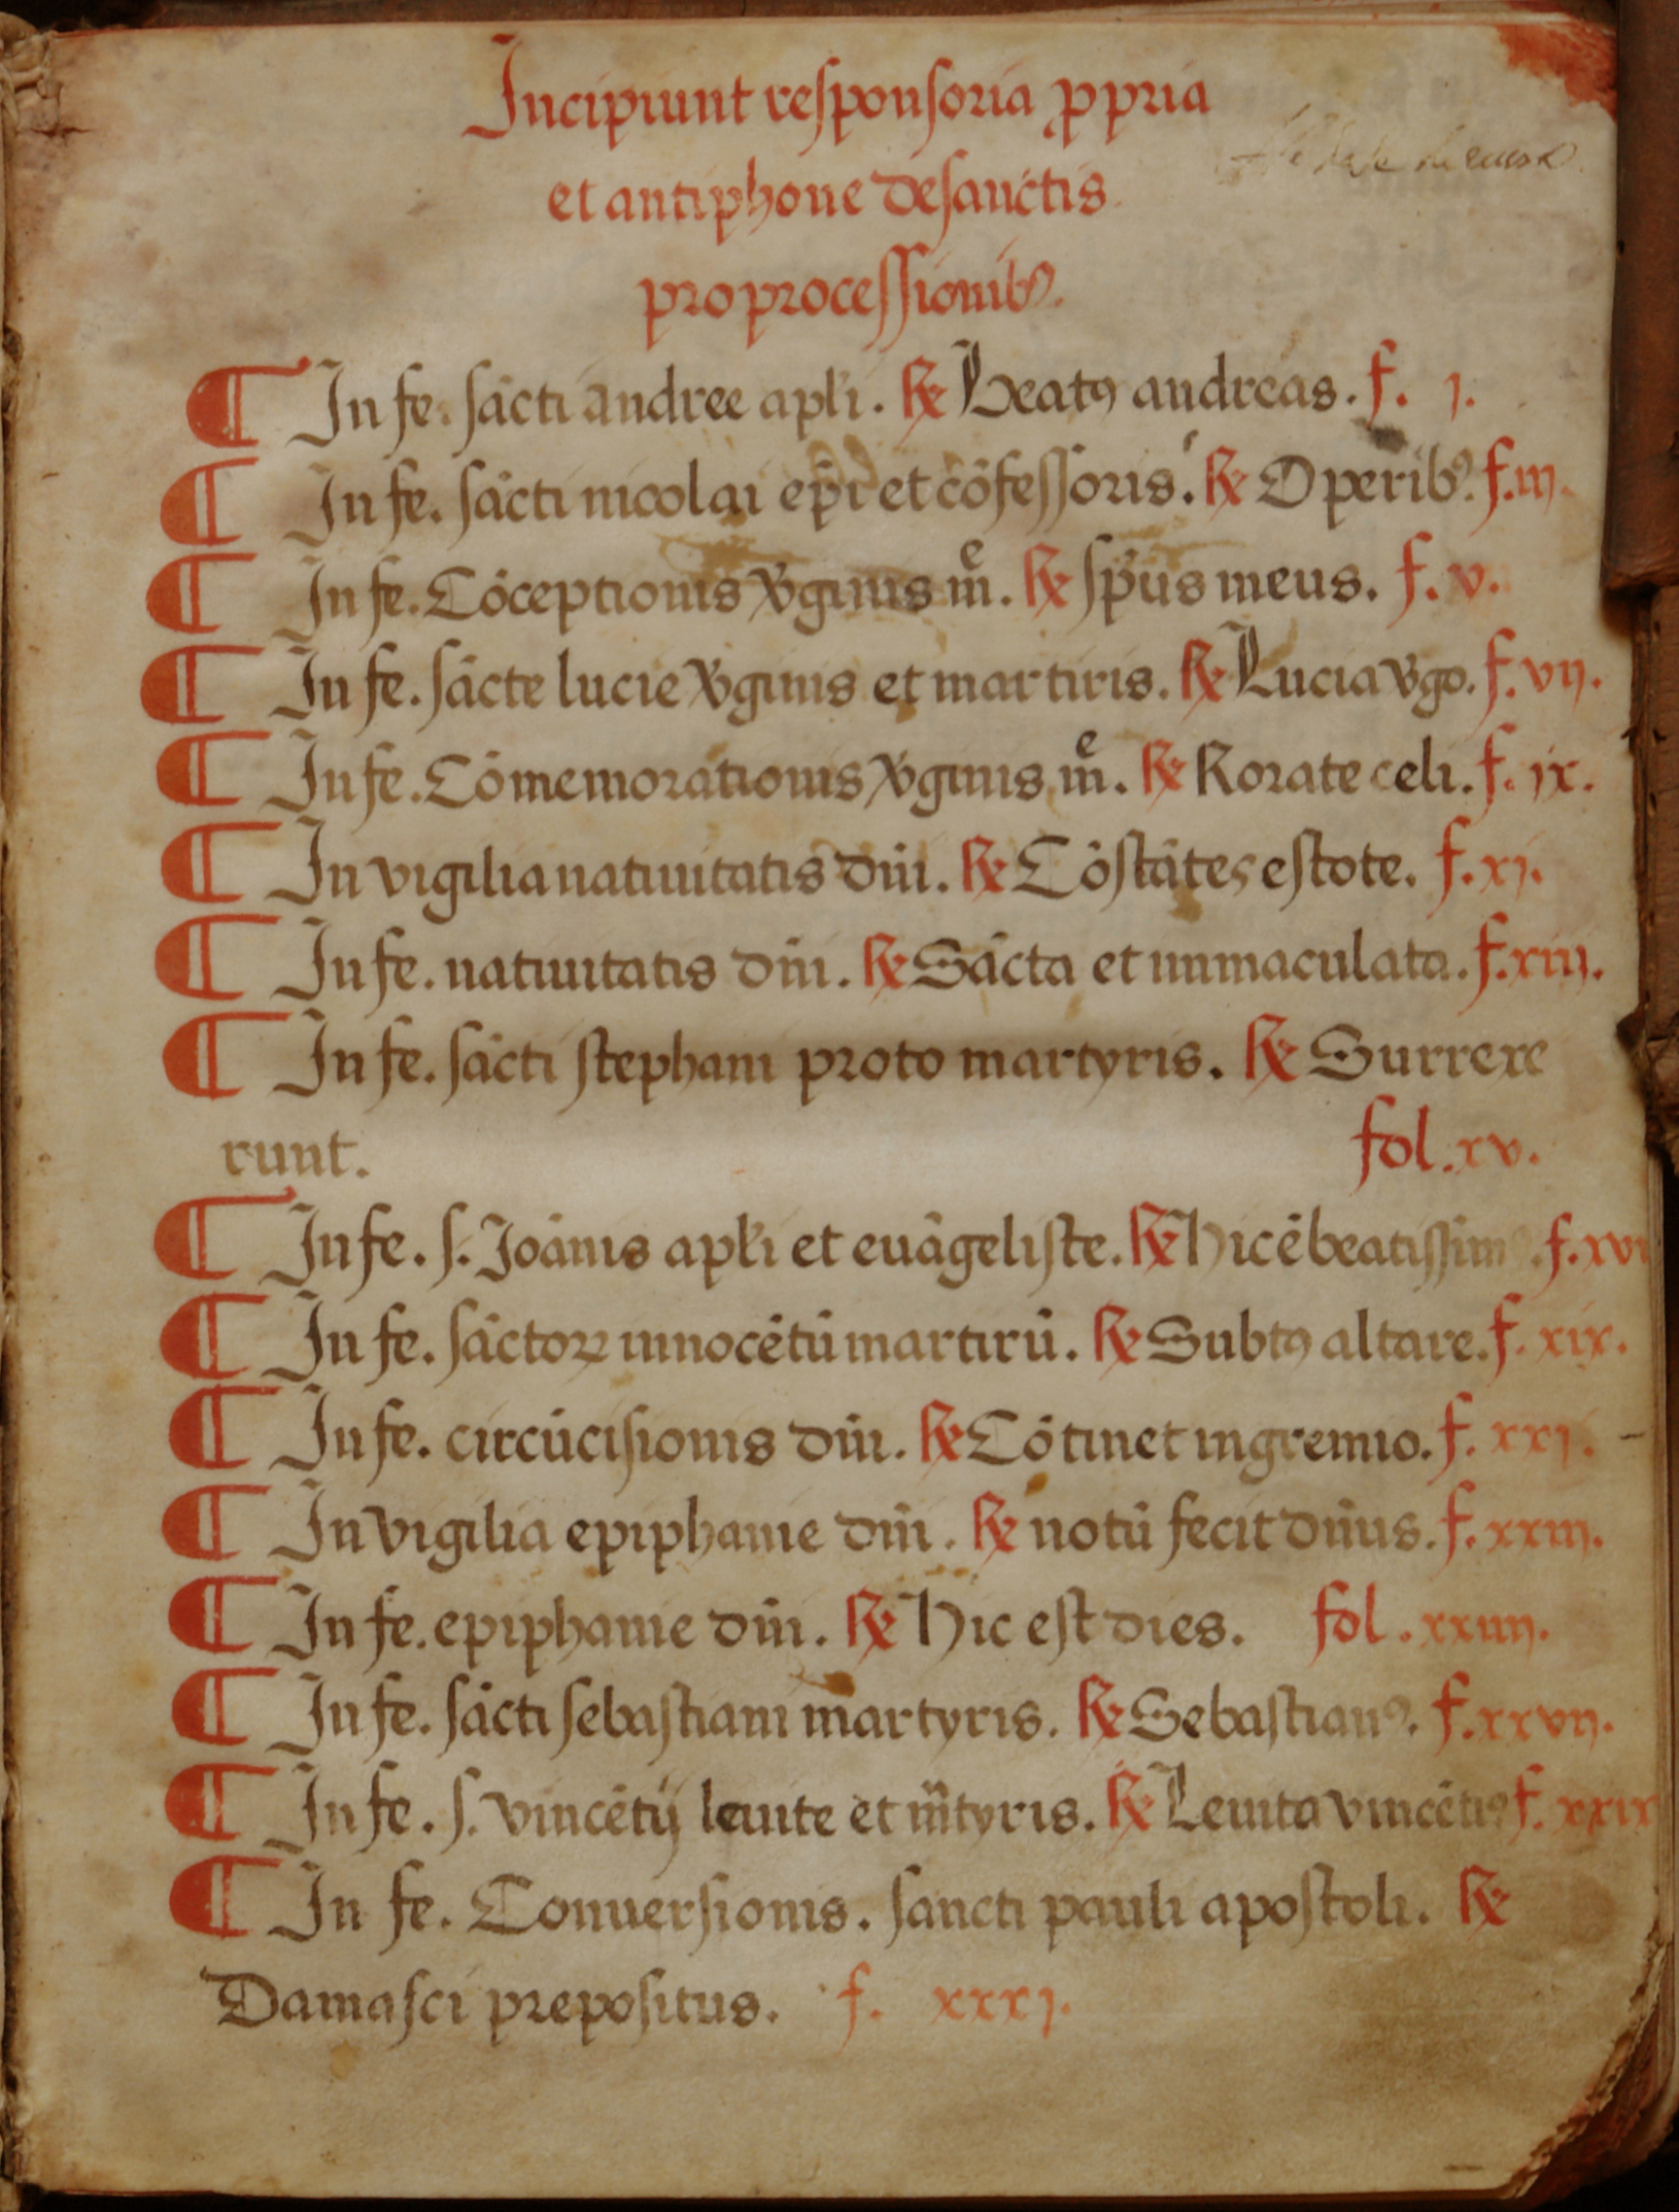 Incipiunt responsoria ꝓpria
et antiphone de sanctis
pro processionibꝰ.
¶ In fe. sācti andree apl'i. ℟ Beatꝯ andreas. f. j.
¶ In fe. sācti nicolai ep̄i et cōfessoris. ℟ Operibꝰ. f. iij.
¶ In fe. Cōceptionis v̾ginis mͤ. ℟ sp̄us meus. f. v.
¶ In fe. sācte lucie v̾ginis et martiris. ℟ Lucia v̾go. f. vij.
¶ In fe. Cōmemorationis v̾ginis mͤ. ℟ Rorate celi. f. ix.
¶ In vigilia natiuitatis dn̄i. ℟ Cōstātes estote. f. xj.
¶ In fe. natiuitatis dn̄i. ℟ Sācta et inmaculata. f. xiij.
¶ In fe. sācti stephani proto martyris. ℟ Surrexe
runt. fol. xv.
¶ In fe. s. Joānis apl'i et euāgeliste. ℟ hic ē beatissimꝰ. f. xvi
¶ In fe. sāctoꝝ innocētū martirū. ℟ Subtꝯ altare. f. xix.
¶ In fe. circūcisionis dn̄i. ℟ Cōtinet in gremio. f. xxj.
¶ In vigilia epiphanie dn̄i. ℟ notū fecit dn̄us. f. xxiij.
¶ In fe. epiphanie dn̄i. ℟ hic est dies. fol. xxiiij.
¶ In fe. sācti sebastiani martyris. ℟ Sebastianꝰ. f. xxvij.
¶ In fe. s. vincētij leuite et m̄tyris. ℟ Leuita vincētiꝰ f. xxix
¶ In fe. Conuersionis. sancti pauli apostoli. ℟
Damasci prepositus. f. xxxj.